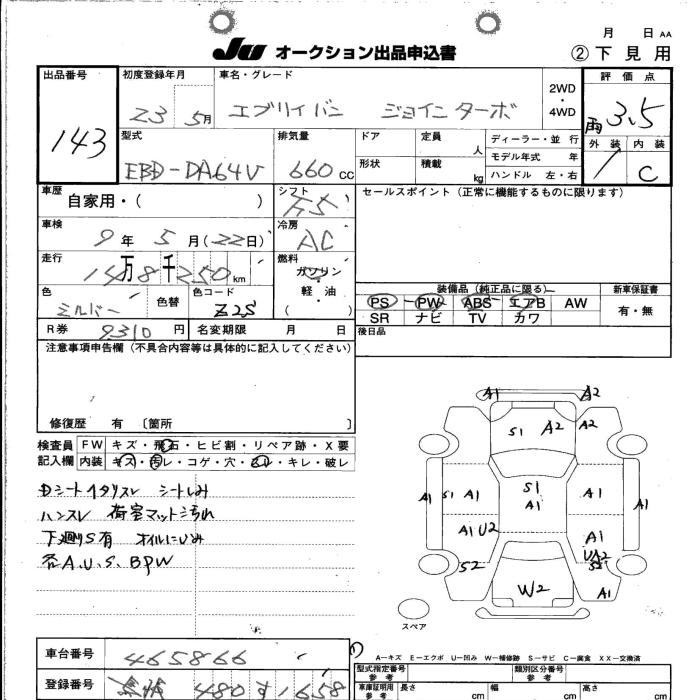 月 日 AA
JU オークション出品申込書 ②下見用
出品番号 初度登録年月 車名・グレード 2WD・4WD 評価点
143 23 5月 エブリイバン ジョインターボ 雨 3.5
型式 排気量 ドア 定員 人 ディーラー・並行 外装 内装
EBD-DA64V 660CC 形状 積載 kg モデル年式 年 C
ハンドル 左・右
車歴 自家用・( ) シフト F5 セールスポイント (正常に機能するものに限ります)
車検 9年 5月(22日) 冷房 AC
走行 14万8千250km 燃料 ガソリン
軽・油
( )
色 色替 色コード Z2S
装備品 (純正品に限る) 新車保証書
PS PW ABS エアB AW 有・無
SR ナビ TV カワ
R券 9310円 名変期限 月 日 後日品
注意事項申告欄 (不具合内容等は具体的に記入してください)
修復歴 有 〔箇所 〕
検査員記入欄 FW キズ・飛石・ヒビ割・リペア跡・X要
内装 キズ・汚レ・コゲ・穴・スレ・キレ・破レ
Dシートイタ スレ シートしみ
ハンスレ 荷室マット汚れ
下廻りS有 オイルにじみ
A1 A2
S1 A2 A2
A1 S1 A1 S1 A1 A1 A1
A1 U2 A1
S2 UA2
W2 A1
スペア
A—キズ E—エクボ U—凹み W—補修跡 S—サビ C—腐食 XX—交換済
車台番号 465866
登録番号 480 す 1658
型式指定番号 参考 類別区分番号 参考
車庫証明用 参考 長さ cm 幅 cm 高さ cm